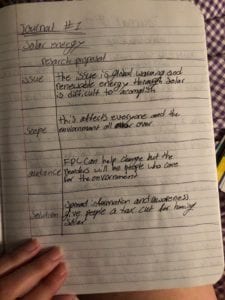 Journal #1
Solar energy
research proposal
issue the issue is global warming and
renewable energy through solar
is difficult to accomplish
Scope this affects everyone and the
enviornment all over.
audience FPL Can help change but the
readers will be people who care
for the enviornment
Solution Spread information and awareness
give people a tax cut for having
solar